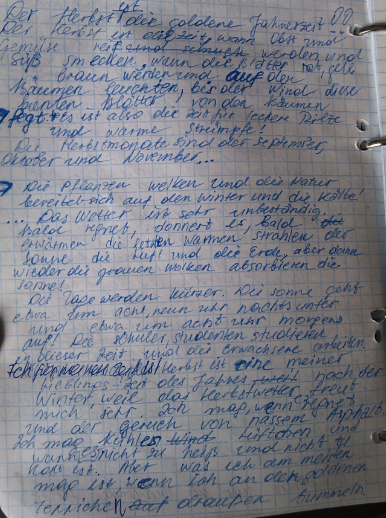 Der Herbst ist die goldene Jahreszeit...
Der Herbst ist die Zeit, wann Obst und
Gemüse reif und schmuck werden und
süß smecken, wann die Blätter rot, gelb
braun werden und auf den
Bäumen leuchten, bis der Wind diese
bunten Blätter von den Bäumen
fegt: es ist also die Zeit für leckere Pilze
und warme Strümpfe!
Die Herbstmonate sind der September,
Oktober und November...
Die Pflanzen welken und die Natur
bereitet sich auf den Winter und die Kälte!
... Das Wetter ist sehr unbeständig,
bald regnet, donnert es, bald
erwärmen die letzten warmen Strahlen der
Sonne die Luft und die Erde, aber dann
wieder die grauen Wolken absorbieren die
Sonne!
Die Tage werden kürzer. Die Sonne geht
etwa um acht, neun Uhr nachts unter
und etwa um acht Uhr morgens
auf! Die Schüler, Studenten studieren
in dieser Zeit und die Erwachsene arbeiten.
Herbst ist eine meiner
Lieblings Zeit des Jahres nach der
Winter, weil das Herbstwetter freut
mich sehr. Ich mag, wenn regnet
und der Geruch von nassem Asphalt
Ich mag kühles Wind
wann es nicht zu heiß und nicht zu
kalt ist. Aber was ich am meisten
mag ist, wenn ich an den goldenen
Teppichen auf draußen tummeln